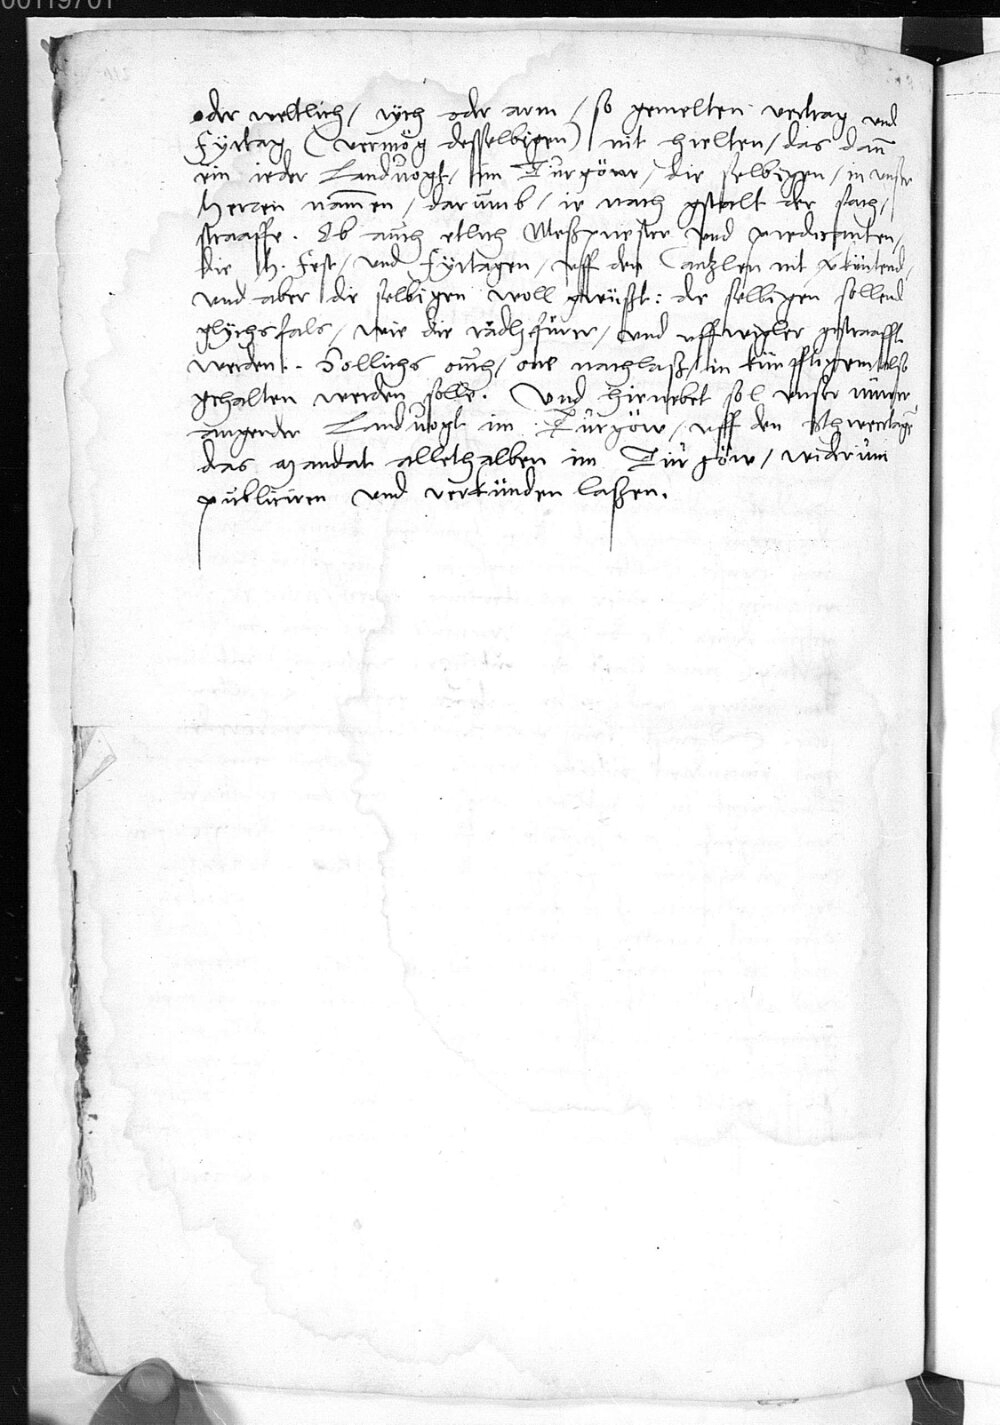 00119701
oder weltlich / rych oder arm / so gemelten vertrag und
Fyrtag (vermög desselbigen) nit hielten / das dann
ein ieder Landuogt / im Turgöuw / die selbigen / in unser
Herren nammen / darumb / ie nach gstalt der sach /
straaffe. Ob auch etlich Meßpriester und predicanten /
die H. Fest / und Fyrtagen / uff den Cantzlen nit verküntend /
und aber die selbigen woll gwüsst: die selbigen sollend
glychsfals / wie die rädlifürer / und uffwigler gestraafft
werden. Sollichs ouch / one nachlaß / in künfftigem also
gehalten werden solle. Und hienebet sol unser
angender Landuogt im Turgöw / uff den schwertagen
das Mandat allethalben im Turgöw / widerum
publiciren und verkünden laßen.